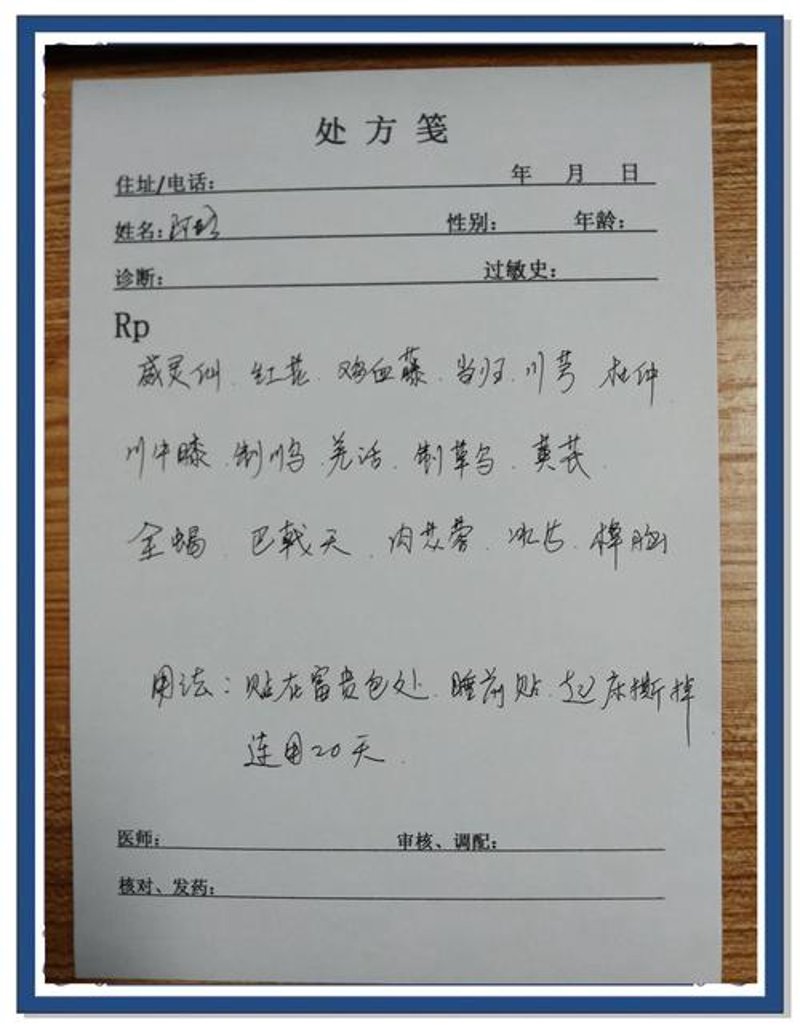 处方笺
住址/电话: 年 月 日
姓名: 性别: 年龄:
诊断: 过敏史:
Rp
威灵仙.红花.鸡血藤.当归.川芎 杜仲
川牛膝.制川乌.羌活.制草乌.黄芪.
全蝎.巴戟天.肉苁蓉.冰片.樟脑
用法:贴在富贵包处.睡前贴.起床撕掉
连用20天.
医师: 审核、调配:
核对、发药: